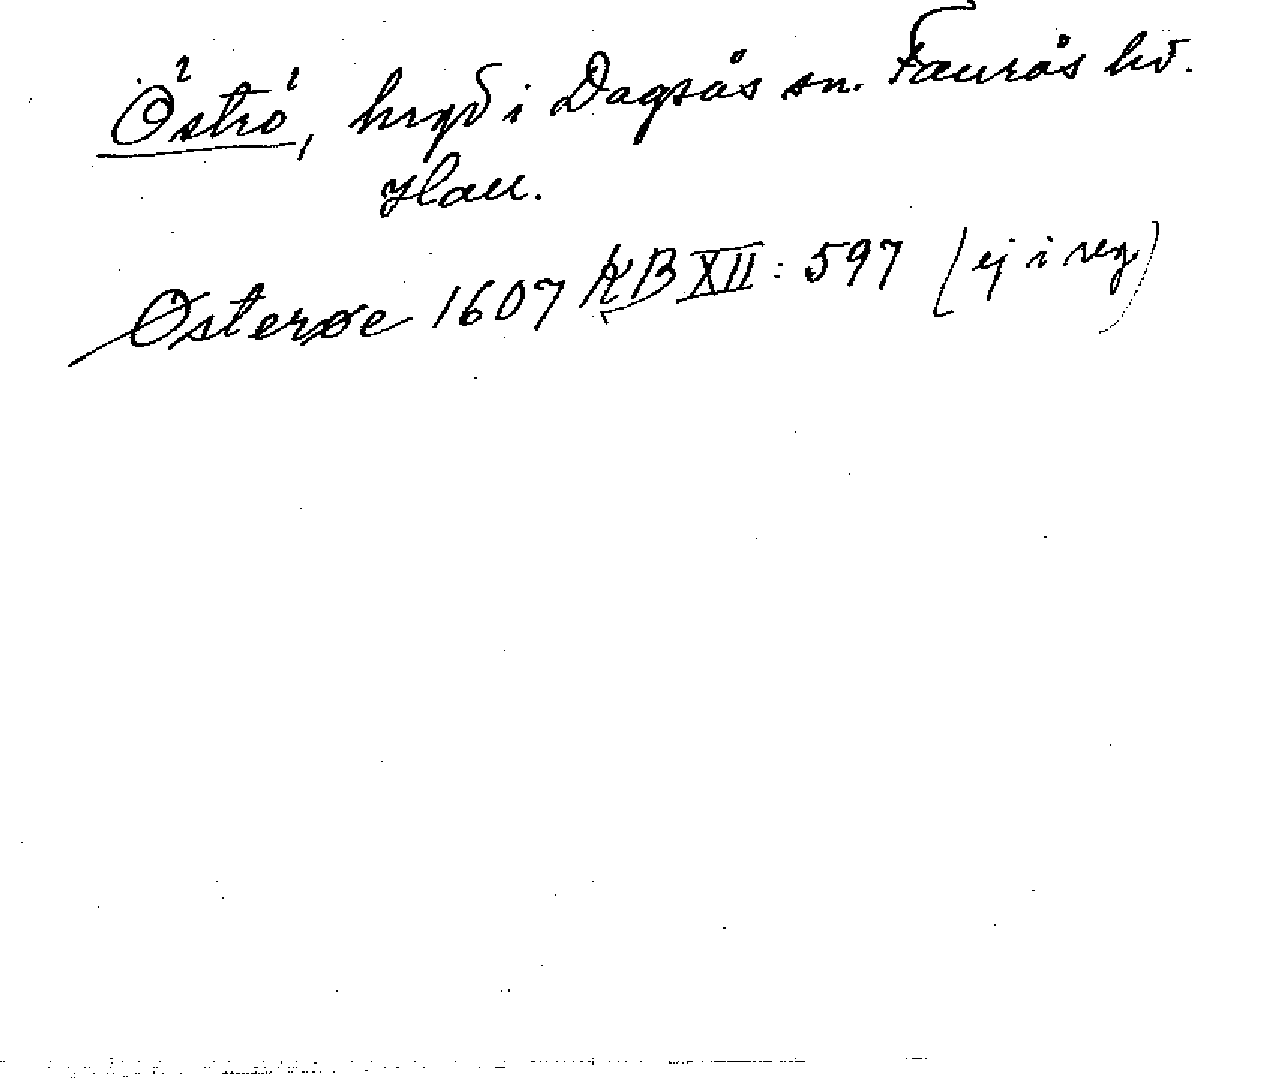 Östró, hryð i Dagsås sn. Faurås hð.
Hall.
Østerøe 1607 KB XII: 597 (ej i reg)